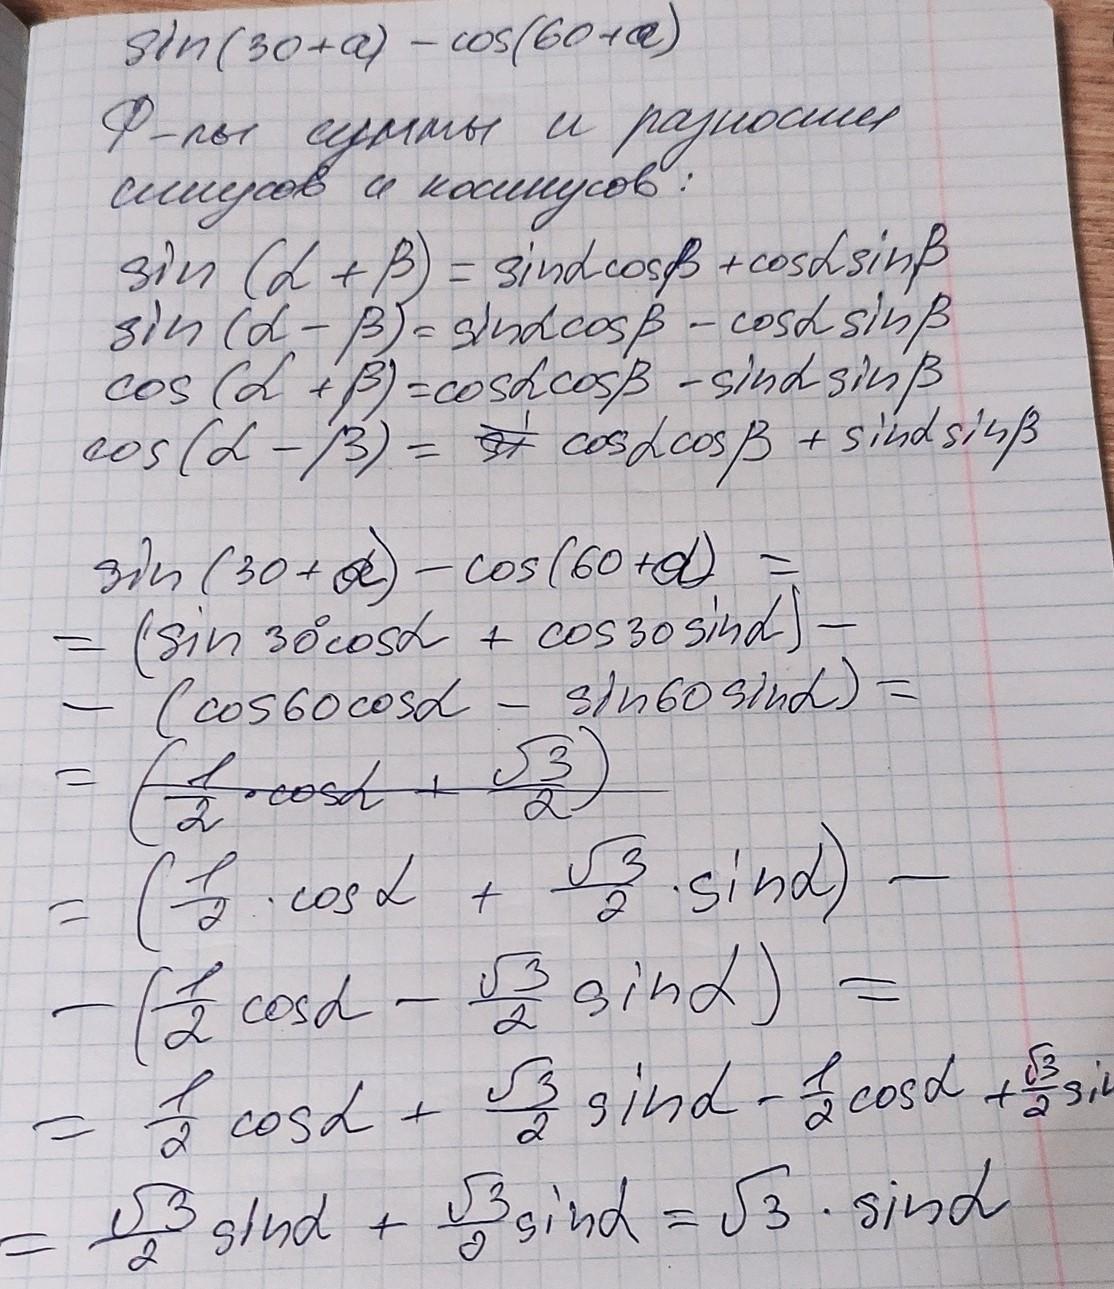 sin(30+α) - cos(60+α)
Ф-лы суммы и разности
синусов и косинусов:
sin (α + β) = sinαcosβ + cosαsinβ
sin (α - β) = sinαcosβ - cosαsinβ
cos (α + β) = cosαcosβ - sinαsinβ
cos(α - β) = cosαcosβ + sinαsinβ
sin(30+α) - cos(60+α) =
= (sin30°cosα + cos30sinα) -
- (cos60cosα - sin60sinα) =
= (1/2 · cosα + √3/2)
= (1/2 · cosα + √3/2 · sinα) -
- (1/2 cosα - √3/2 sinα) =
= 1/2 cosα + √3/2 sinα - 1/2 cosα + √3/2 sin
= √3/2 sinα + √3/2 sinα = √3 · sinα